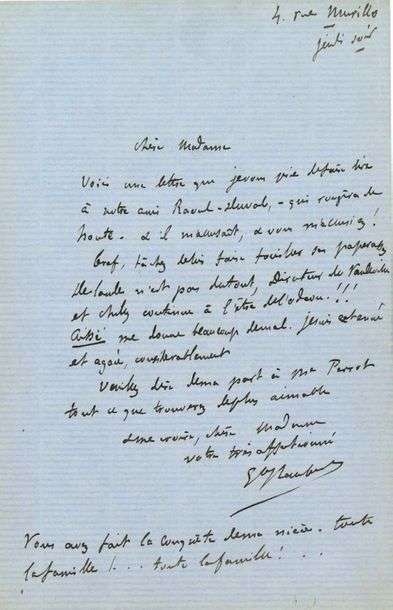 4. rue Murillo
jeudi soir
chère Madame
Voici une lettre que je vous prie de faire lire
à notre ami Raoul-Duval, - qui rougira de
honte. - & il m'accusait, & vous m'accusiez!
Bref, tâchez de lui faire fouiller ses paperasses
Delaule n'est pas du tout, Directeur de Vaudeville
et Chilly continue à l'être de l'odéon.!!!
Aïssé me donne beaucoup de mal. je suis exténué
et agacé, considérablement
Veuillez dire de ma part à Me Perrot
tout ce que trouverez de plus aimable
& me croire, chère Madame
votre très affectionné
G Flaubert
Vous avez fait la conquête de ma nièce. toute
la famille!... toute la famille!...